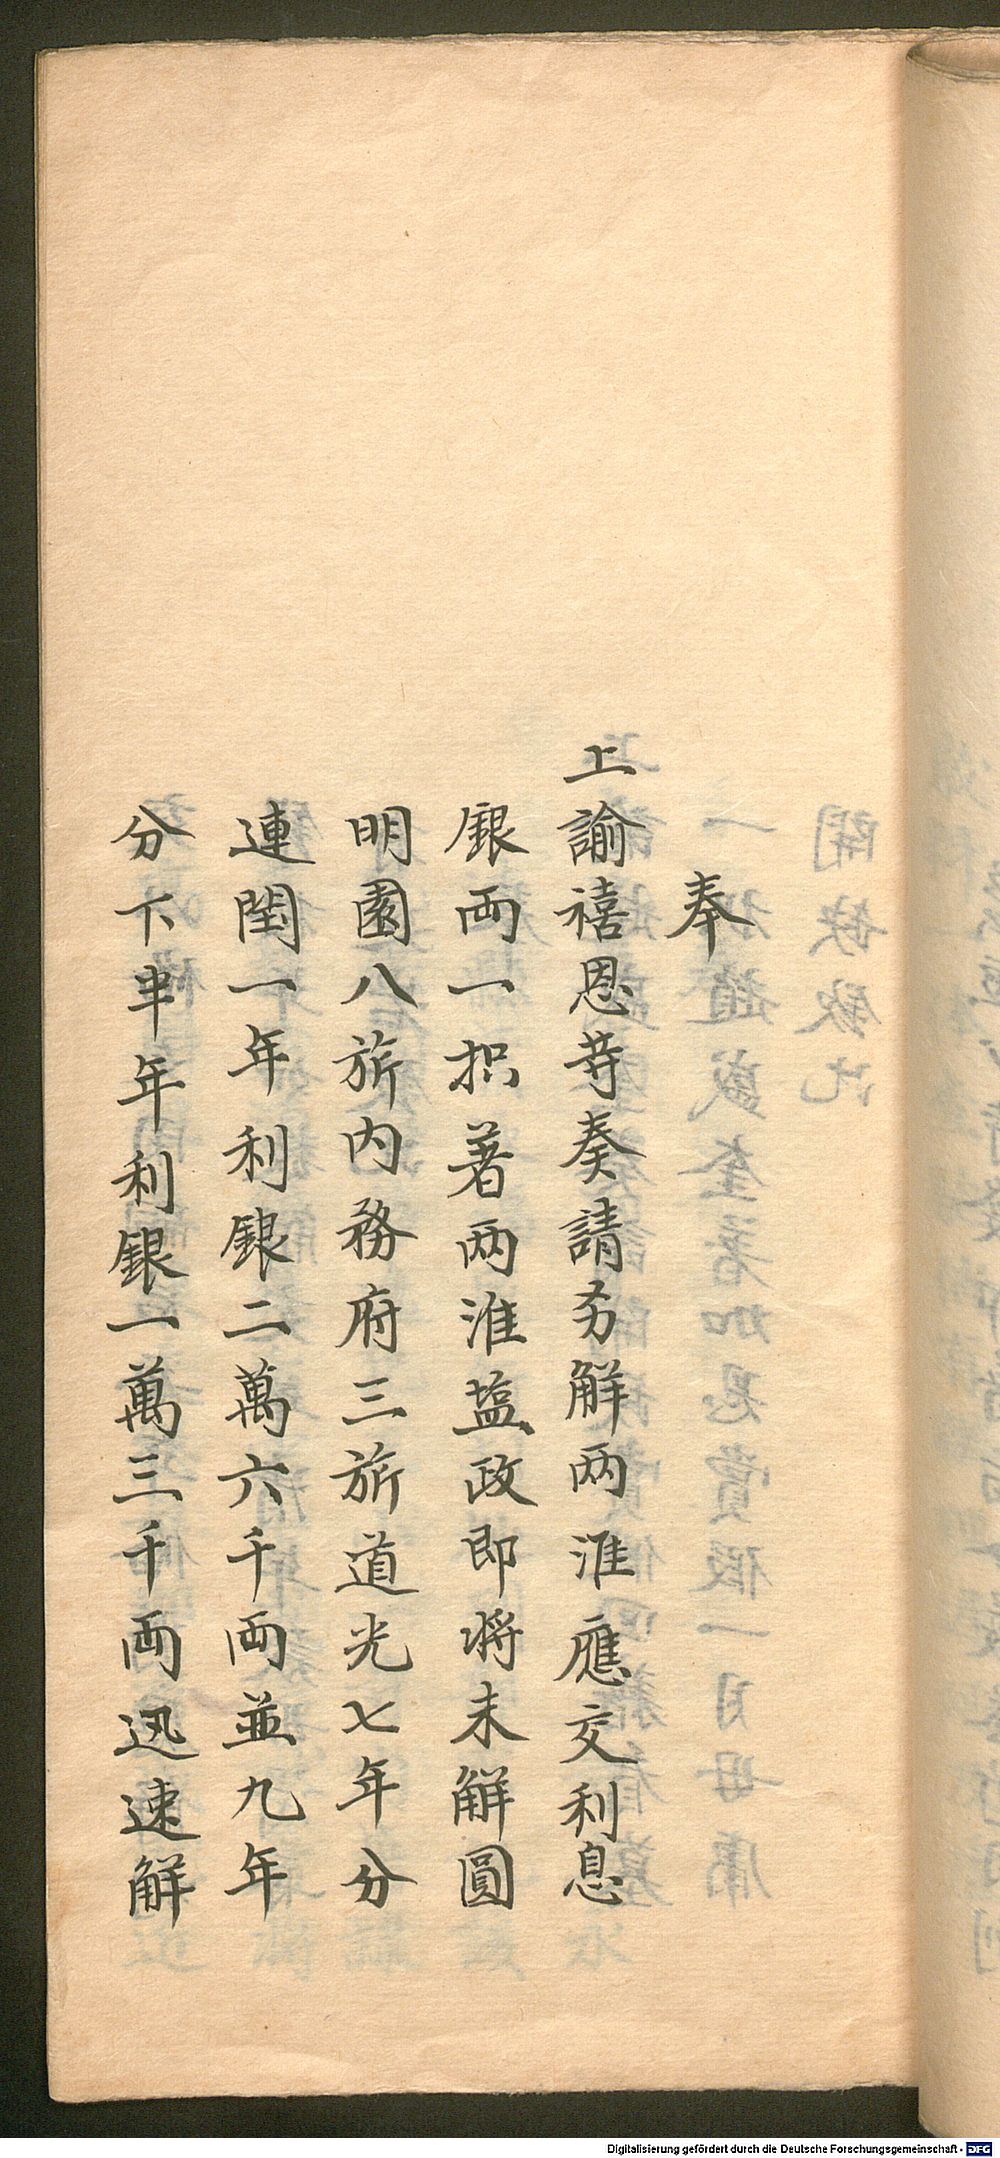 奉
上諭禧恩等奏請劣解两淮應交利息
銀両一摺著两淮盐政即将未解圓
明園八旂内務府三旂道光七年分
連閏一年利銀二萬六千両並九年
分下半年利銀一萬三千両迅速解
Digitalisierung gefördert durch die Deutsche Forschungsgemeinschaft - DFG